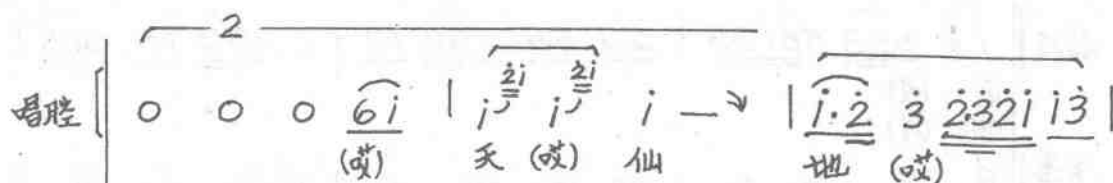 2
2̇i̇ 2̇i̇
唱腔 0 0 0 6 i̇ | i̇ i̇ i̇ — ↘ | i̇· 2̇ 3̇ 2̇·3̇2̇i̇ i̇3̇ |
(哎) 天 (哎) 仙 地 (哎)